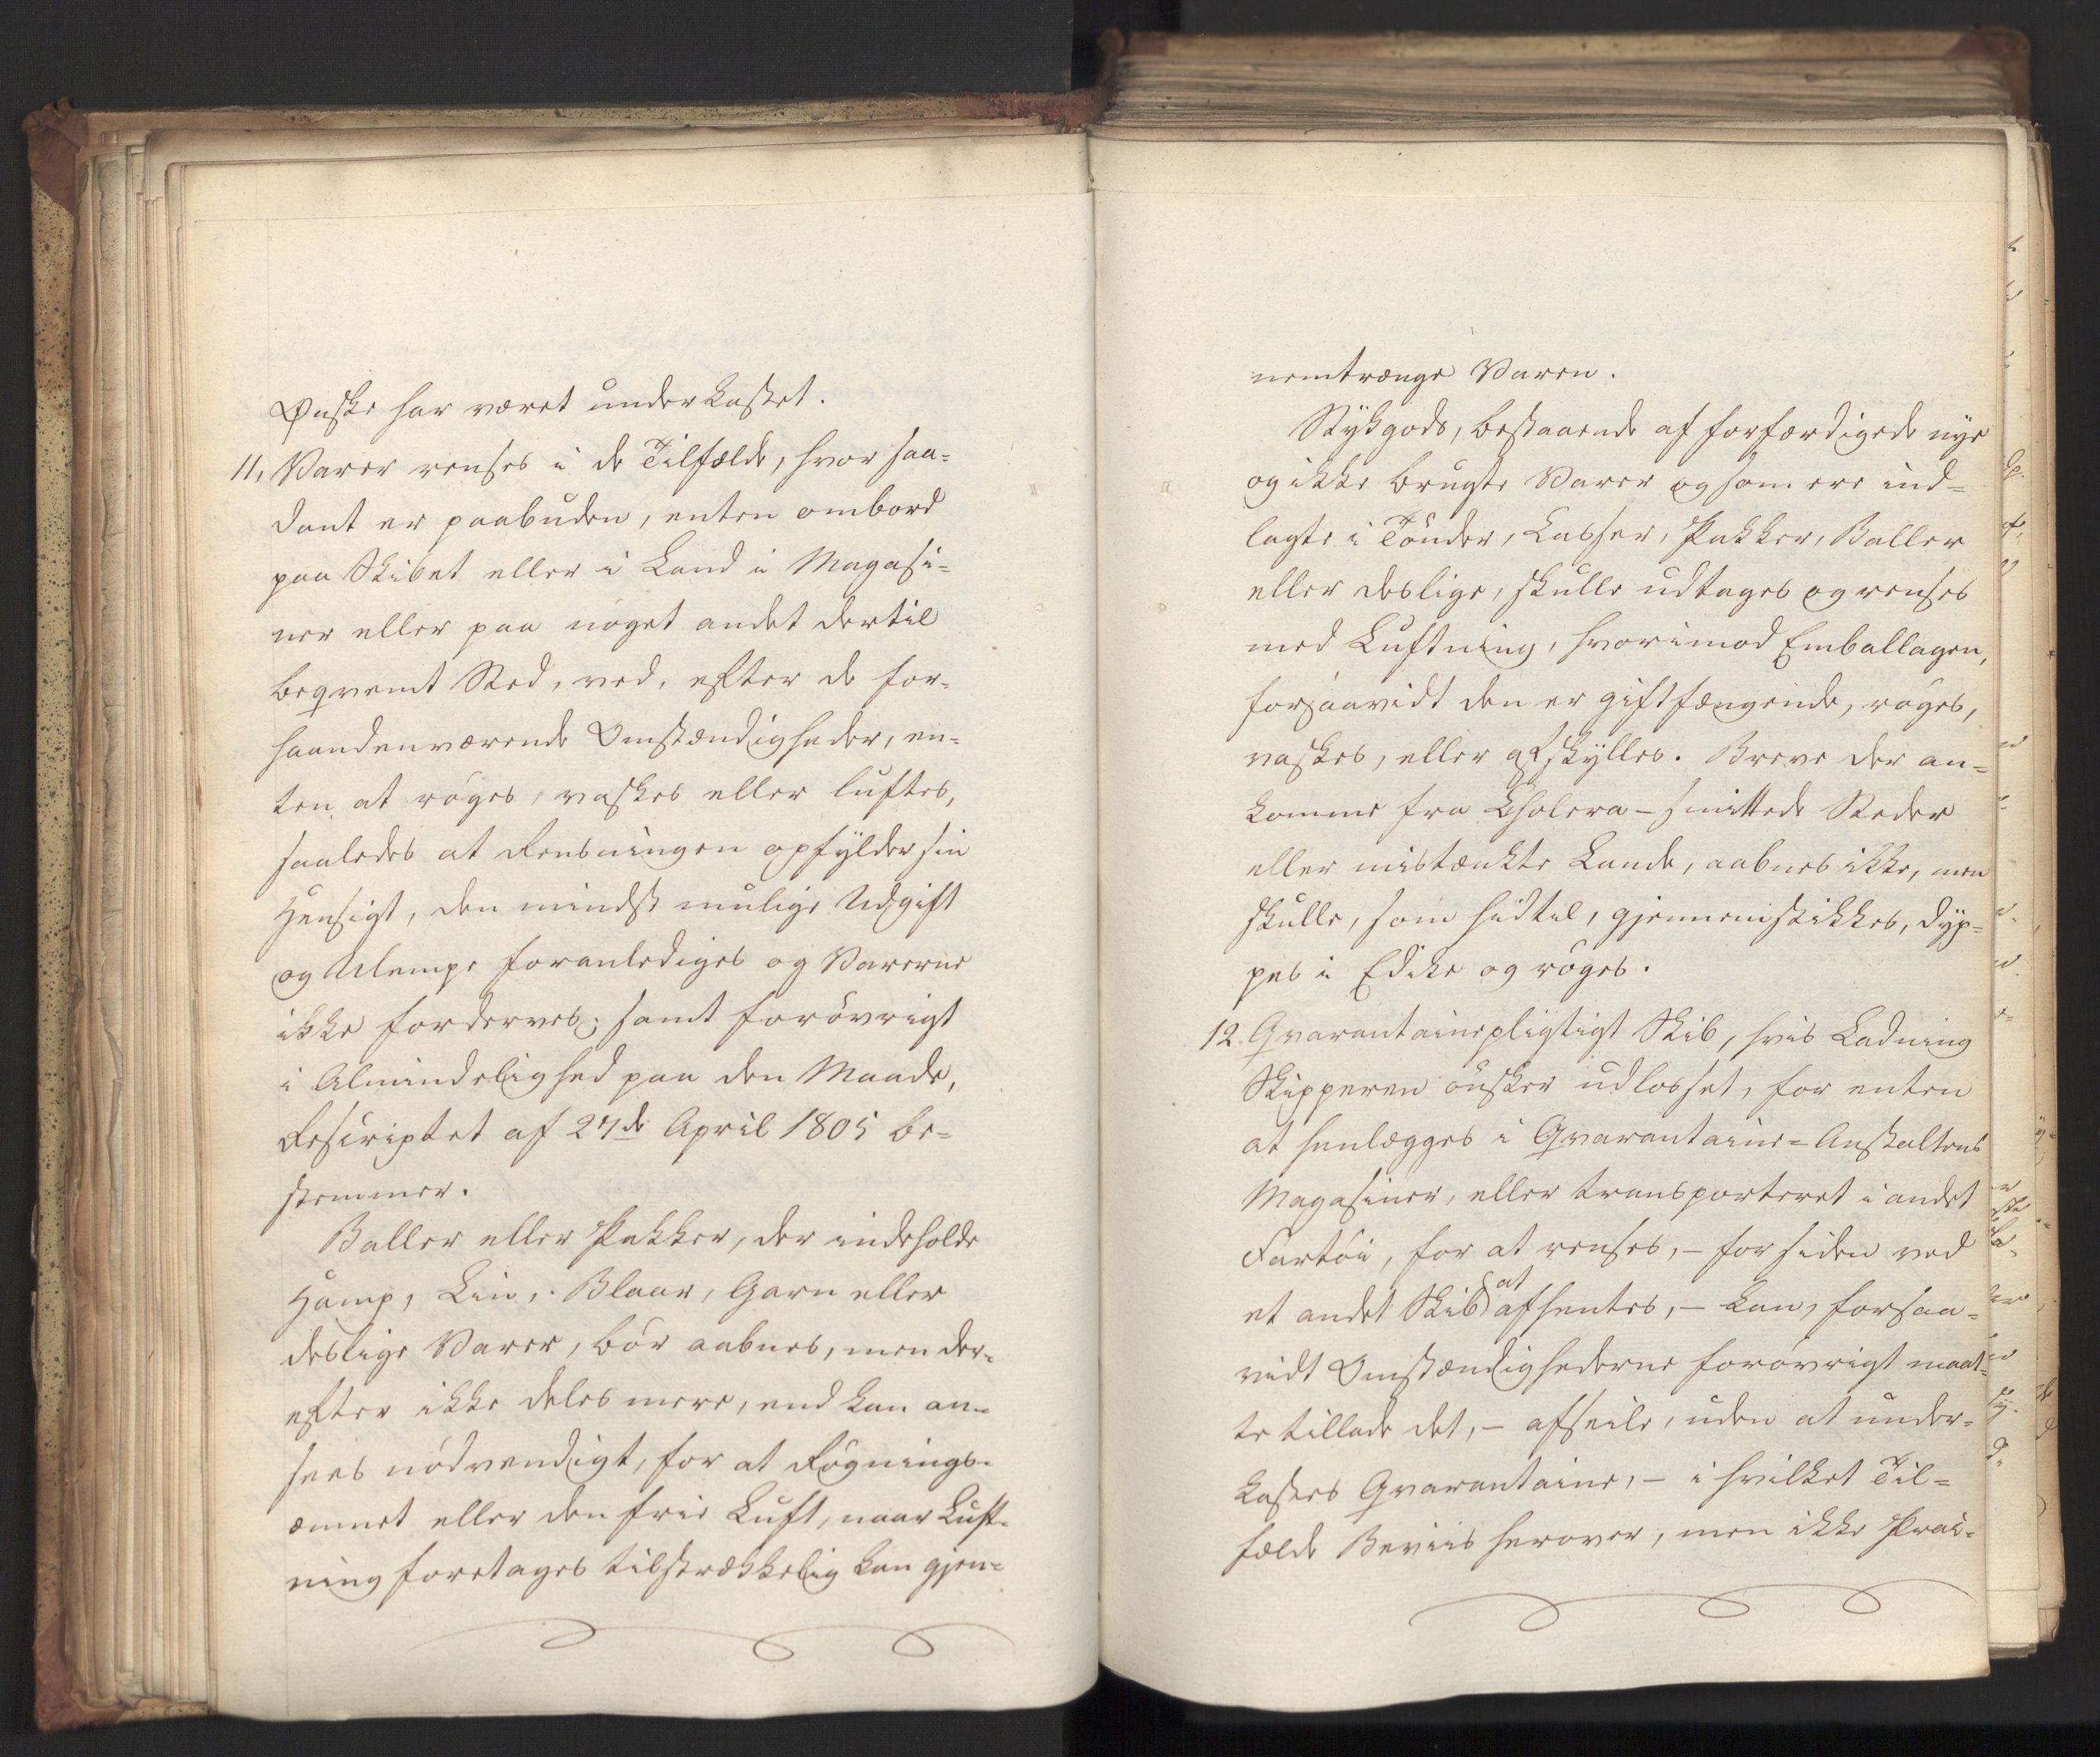 Ønske har været underkastet.
11, Varer renses i de Tilfælde, hvor saa-
dant er paabuden, enten ombord
paa Skibet eller i Land i Magasi-
ner eller paa noget andet dertil
beqvemt Sted, ved, efter de for-
haandenværende Omstændigheder, en-
ten at röges, vaskes eller luftes,
saaledes at Rensningen opfylder sin
Hensigt, den mindst mulige Udgift
og Ulempe foranlediges og Varerne
ikke forderves; samt forövrigt
i Almindelighed paa den Maade,
Rescriptet af 27de April 1805 be-
stemmer.
Baller eller Pakker, der indeholde
Hamp, Lin, Blaar, Garn eller
deslige Varer, bör aabnes, men der-
efter ikke deles mere, end kan an-
sees nödvendigt, for at Rögnings-
æmnet eller den frie Luft, naar Luft-
ning foretages tilstrækkelig kan gjen-
nemtrænge Varen.
Stykgods, bestaaende af forfærdigede nye
og ikke brugte Varer og som ere ind-
lagte i Tönder, Kasser, Pakker, Baller
eller deslige, skulle udtages og renses
med Luftning, hvorimod Emballagen,
forsaavidt den er giftfængende, röges,
vaskes, eller afskylles. Breve der an-
komme fra Cholera-smittede Steder
eller mistænkte Lande, aabnes ikke, men
skulle, som hidtil, gjennemstikkes, dyp-
pes i Edike og röges.
12. Qvarantainepligtigt Skib, hvis Ladning
Skipperen önsker udlosset, for enten
at henlægges i Qvarantaine-Anstaltens
Magasiner, eller transporteret i andet
Fartöi, for at renses, – for siden ved
et andet Skib at afhentes, – kan, forsaa-
vidt Omstændighederne forövrigt maat-
te tillade det, – afseile, uden at under-
kastes Qvarantaine, – i hvilket Til-
fælde Beviis herover, men ikke Prai-